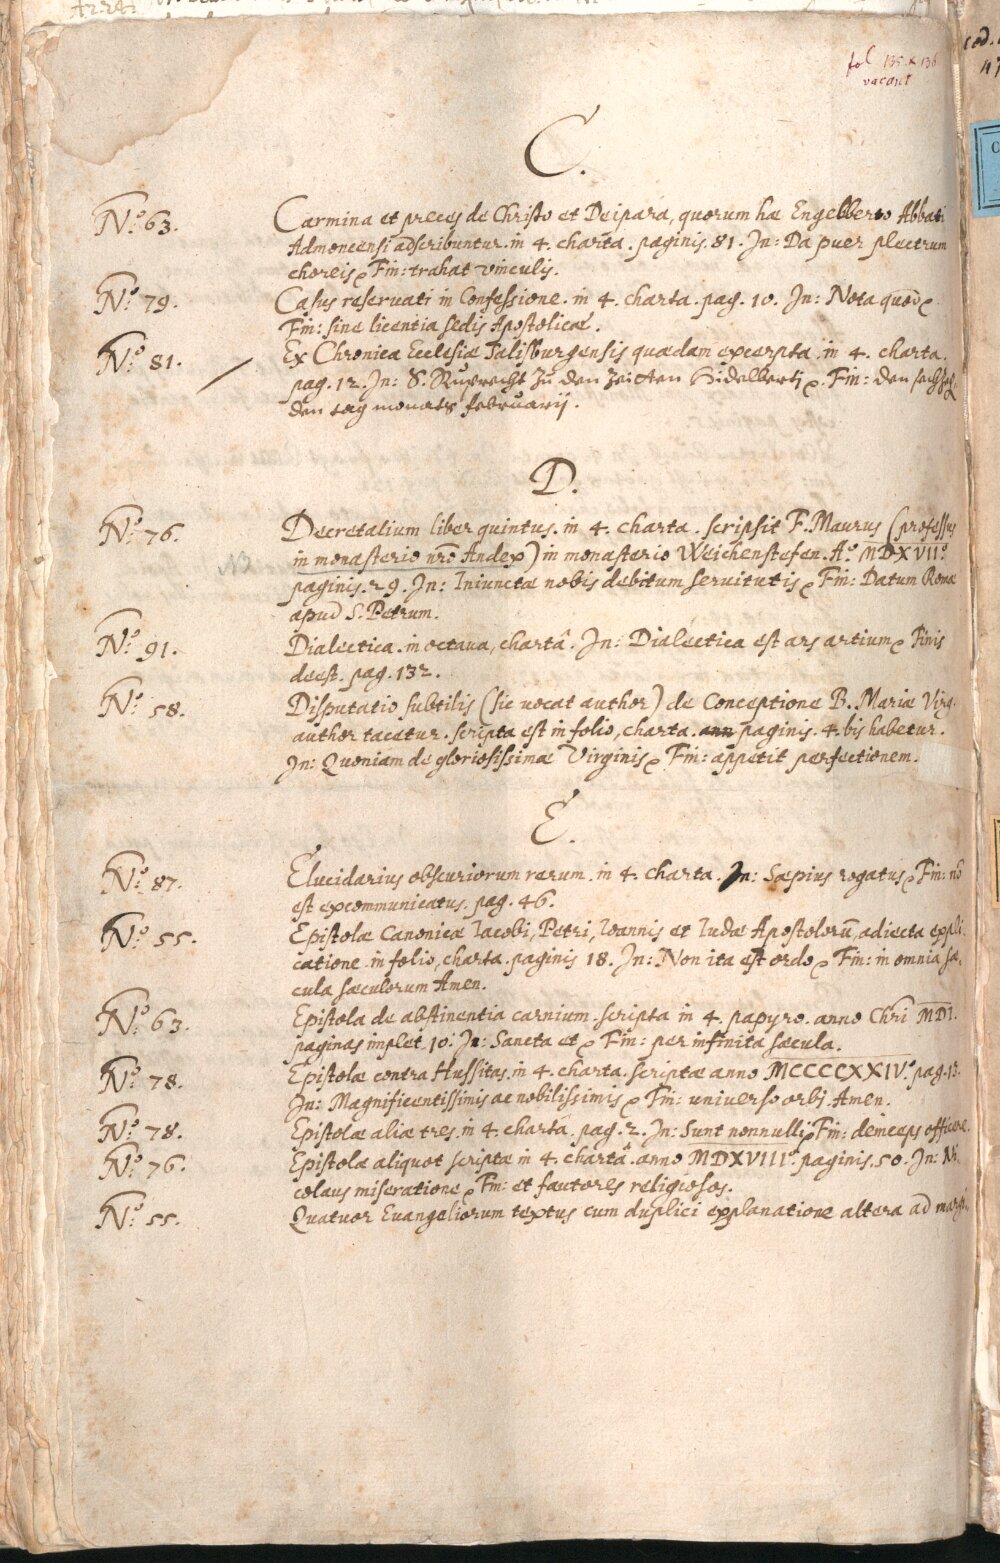 fol 135 x 136
vacant
C.
No. 63.
Carmina et preces de Christo et Deipara, quorum hæ Engelberto Abbati
Admoncensi adscribuntur. in 4. charta. paginis. 81. In: Da puer plectrum
choreis Fin: trahat vinculis.
No. 79.
Casus reservati in Confessione. in 4. charta. pag. 10. In: Nota quod
Fin: sine licentia sedis Apostolicæ.
No. 81.
Ex Chronica Ecclesiæ Salisburgensis quædam excerpta. in 4. charta.
pag. 12. In: S. Ruprecht Zu den Zeitten Hidelberti. Fin: den
den tag monats februarij.
D.
No. 76.
Decretalium liber quintus. in 4. charta. scripsit F. Maurus (professus
in monasterio nrõ Andex) in monasterio Weichenstefen. Ao. MDXVIIo.
paginis. 29. In: Iniunctæ nobis debitum servitutis Fin: Datum Romæ
apud S. Petrum.
No. 91.
Dialectica. in octava, chartâ. In: Dialectica est ars artium Finis
deest. pag. 132.
No. 58.
Disputatio subtilis (sic vocat author) de Conceptione B. Mariæ Virg.
author tacetur. scripta est in folio, charta. paginis. 4. bis habetur.
In: Quoniam de gloriosissimæ Virginis Fin: appetit perfectionem.
E.
No. 87.
Elucidarius obscuriorum rerum. in 4. charta. In: Sæpius rogatus Fin: nõ
est excommunicatus. pag. 46.
No. 55.
Epistolæ Canonicæ Iacobi, Petri, Ioannis et Iudæ Apostolorũ, adiecta expli-
catione. in folio, charta. paginis 18. In: Non ita est ordo Fin: in omnia sæ-
cula sæculorum Amen.
No. 63.
Epistola de abstinentia carnium. scripta in 4. papyro. anno Chri MDI.
paginas implet. 10. In: Sancta et Fin: per infinita sæcula.
No. 78.
Epistolæ contra Hussitas. in 4. charta. scriptæ anno MCCCCXXIVo. pag. 13.
In: Magnificentissimis ac nobilissimis Fin: universo orbi. Amen.
No. 78.
Epistolæ aliæ tres. in 4. chartâ. pag. 2. In: Sunt nonnulli Fin: deinceps officere.
No. 76.
Epistolæ aliquot scriptæ in 4. chartâ. anno MDXVIIIo. paginis. 50. In: Ni-
colaus miseratione Fin: et fautores religiosos.
No. 55.
Quatuor Euangeliorum textus cum duplici explanatione altera ad